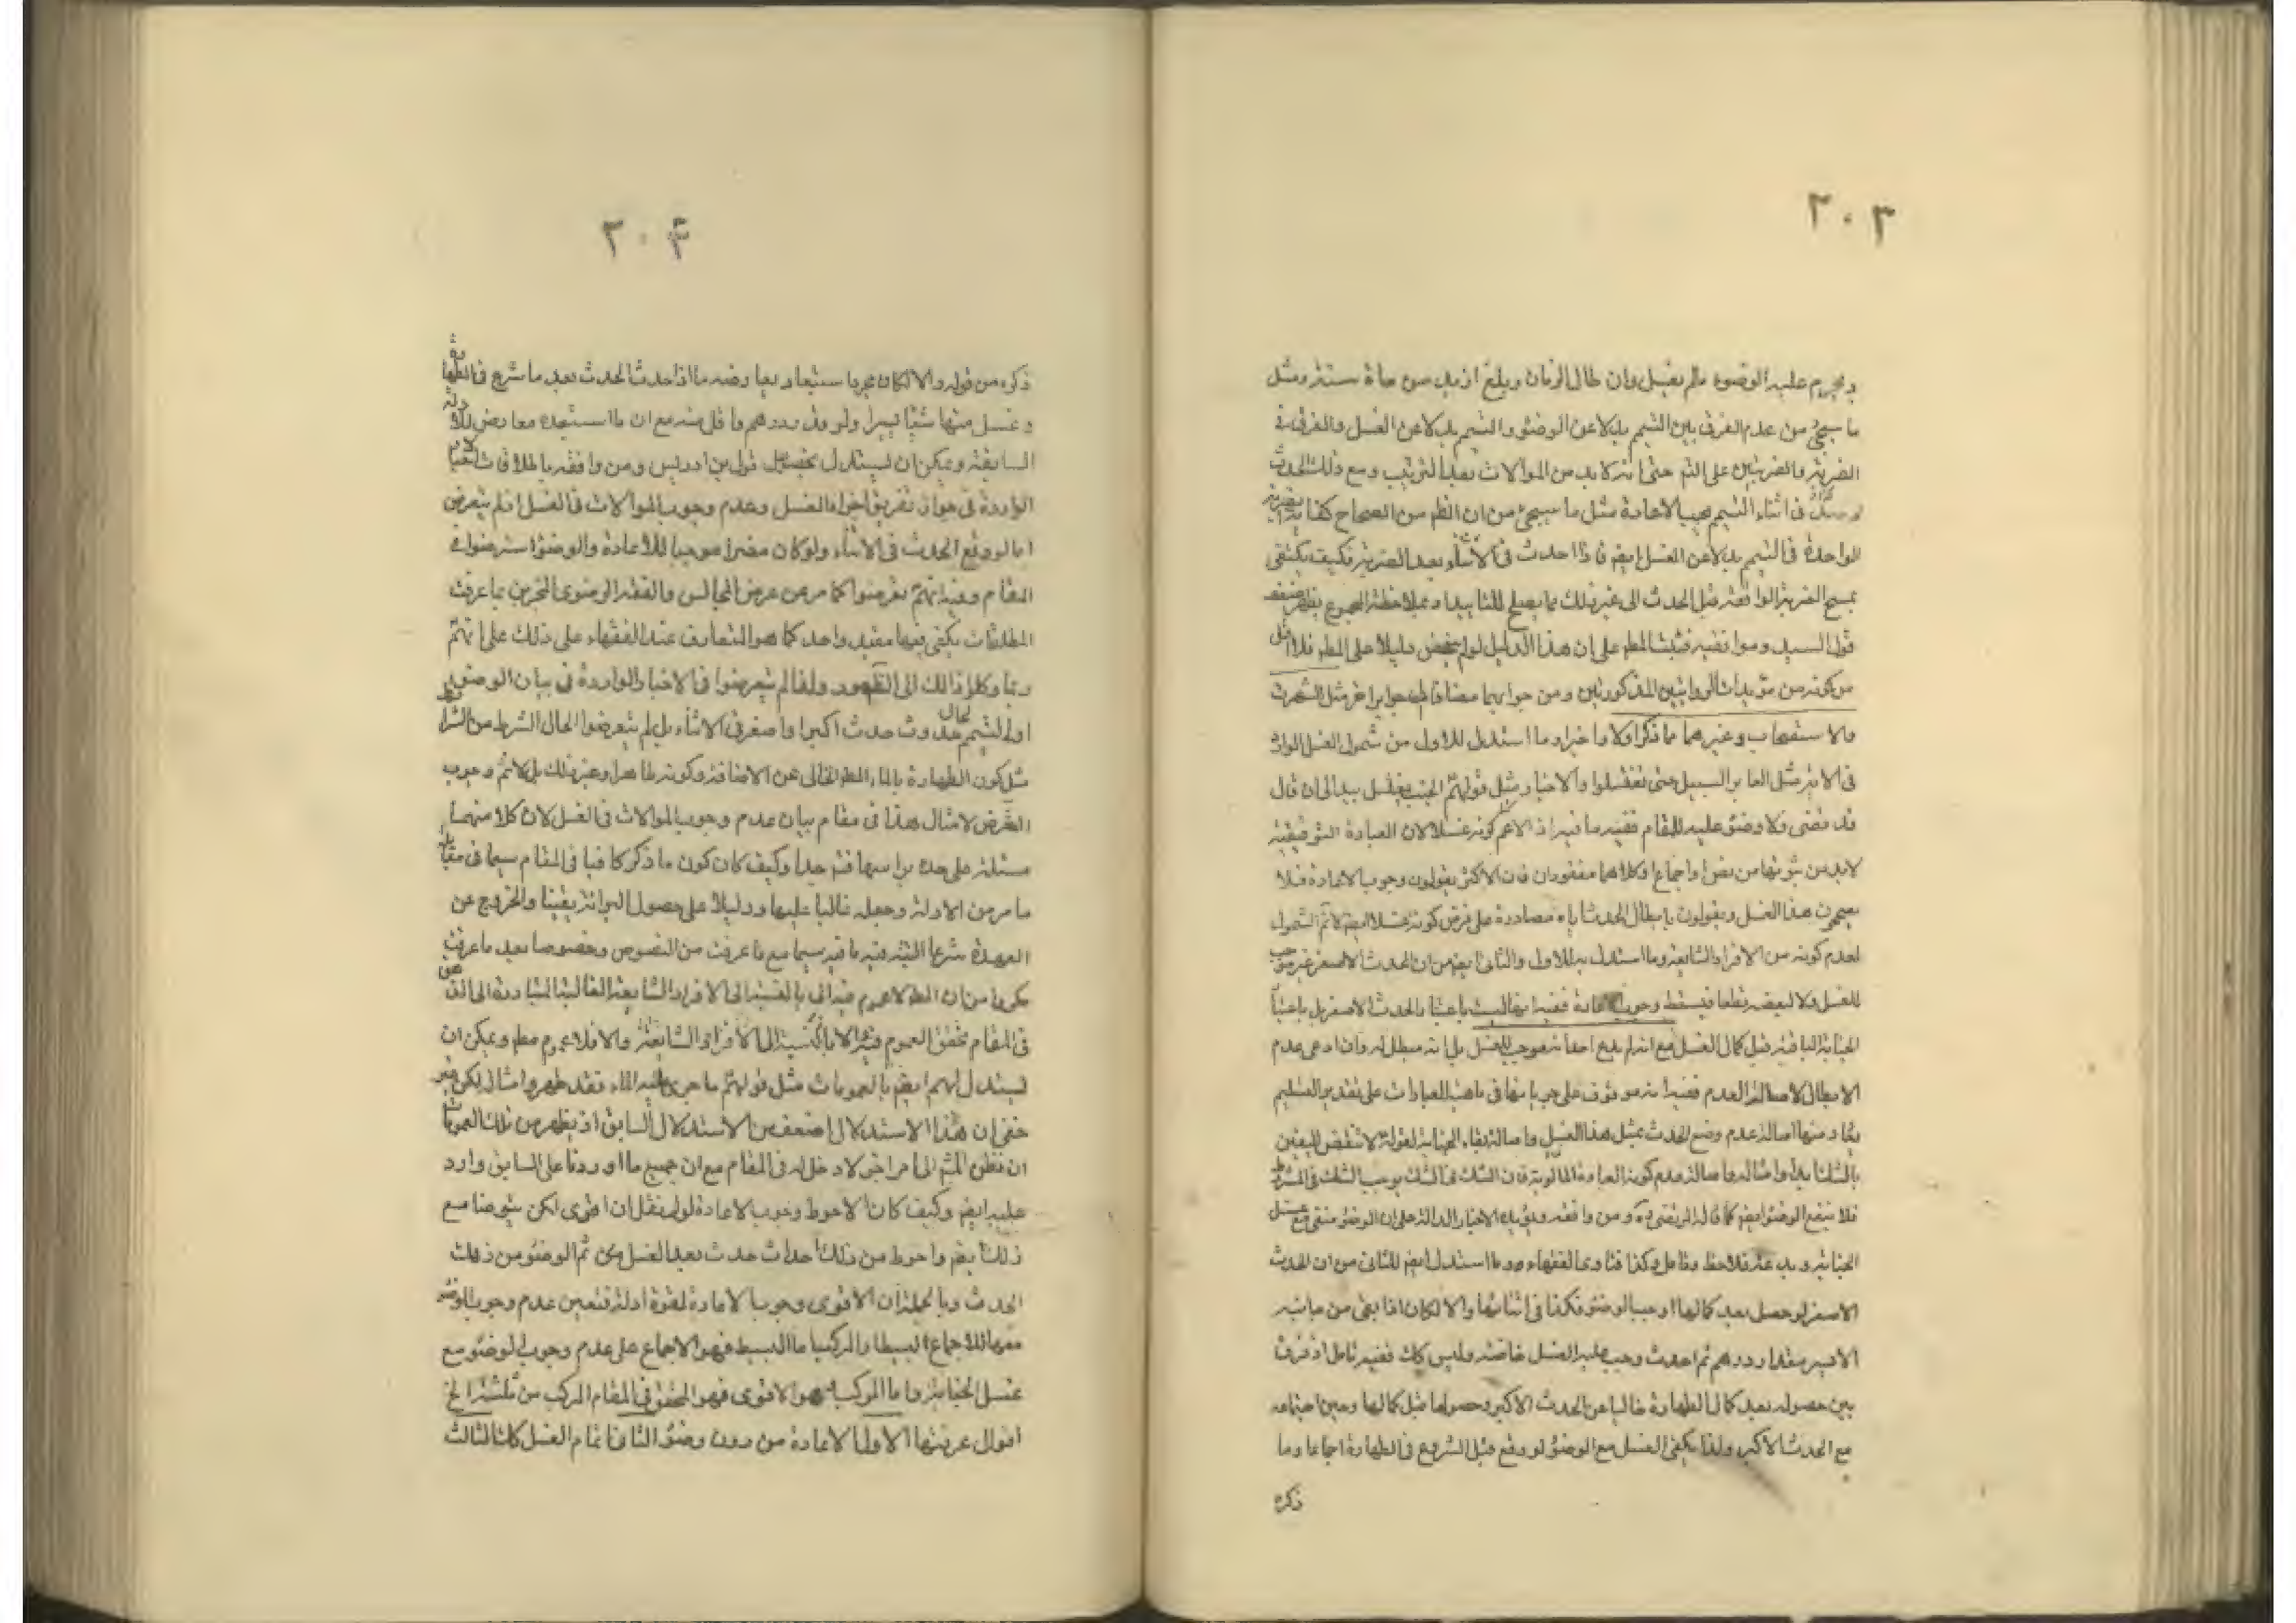 ٢٠٣
ويحرم عليه الوضوء ما لم يغتسل وان طال الزمان وبلغ ازيد من مأة سنة ومثل
ما سيجئ من عدم الفرق بين التيمم بدلا عن الوضوء والتيمم بدلا عن الغسل والفرق في
الضربة والضربتين على التم حتى انه لابد من الموالات بعد الترتيب ومع ذلك الحدث
لو حصل في اثناء التيمم يجب الاعادة مثل ما سيجئ من ان الظم من الصحاح كفاية الضربة
الواحدة في التيمم بدلا عن الغسل ايضم فاذا احدث في الاثناء بعد الضربة فكيف يكتفى
بمسح الضربة الواقعة قبل الحدث الى غير ذلك مما يصلح للتاييد وبملاحظة المجموع يظهر ضعف
قول السيد وموافقيه فثبت المطم على ان هذا الدليل لو لم ينهض دليلا على المطم فلا اقل
من كونه من مؤيدات الروايتين المذكورتين ومن جوابهما مضافا الى جوابر اخر مثل الشهرة
والاستصحاب وغيرهما مما ذكر اولا واخرا وما استدل للاول من شمول الغسل الوارد
في الاية مثل العابر السبيل حتى تغتسلوا والاخبار مثل قولهم الجنب يغسل بيده الى ان قال
قد قضى ولا وضوء عليه للمقام ففيه ما فيه اذ الاعم كونه غسلا لان العبادة التوقيفية
لابد من ثبوتها من نص او اجماع وكلاهما مفقودان فان الاكثر يقولون وجوب الاعادة فلا
يصح هذا الغسل ويقولون بابطال الحدث اياه مصادرة على فرض كونه غسلا ايضم لا تم الشمول
لعدم كونه من الافراد الشايعة وما استدل به للاول والثاني ايضم من ان الحدث الاصغر غير موجب
للغسل ولا لبعضه قطعا فيسقط وجوب الاعادة ففيه انها ليست باعتبار الحدث الاصغر بل باعتبار
الجنابة الباقية قبل كمال الغسل مع انه لم يدع احد انه موجب للغسل بل انه مبطل له وان ادعى عدم
الابطال لاصالة العدم ففيه انه موقوف على جريانها في ماهية العبادات على تقدير التسليم
منها اصالة عدم رفع الحدث بمثل هذا الغسل واصالة بقاء الجنابة لقوله لا تنقض اليقين
بالشك ابدا وامثاله واصالة عدم كونه العبادة المطلوبة فان الشك فى الشك يوجب الشك في الشرط
فلا ينفع الوضوء ايضم كما قاله المرتضى ره ومن وافقه ويؤيده الاخبار الدالة على ان الوضوء منفى مع غسل
الجنابة وبدعة فلاحظ وتامل وكذا فتاوى الفقهاء وما استدل ايضم للثاني من ان الحدث
الاصغر لو حصل بعد كمالها اوجب الوضوء فكذا في اثنائها والا لكان اذا بقى من جانبه
الايسر مقدار درهم ثم احدث وجب عليه الغسل خاصة وليس كك ففيه تامل اذ فرق
بين حصوله بعد كمال الطهارة خاليا عن الحدث الاكبر وحصولها قبل كمالها وحين اجتماعه
مع الحدث الاكبر ولذا يكفى الغسل مع الوضوء لو وقع قبل الشروع في الطهارة اجماعا وما
ذكره
٢٠۴
ذكره من قوله والا لكان مجرد استبعاد يعارضه ما اذا حدث الحدث بعد ما شرع في الطهارة
وغسل منها شيئا يسيرا ولو قدر درهم وما قل منه مع ان ما استبعده معارض للادلة
السابقة ويمكن ان يستدل بتحصيل قول بن ادريس ومن وافقه باطلاقات الاخبار
الواردة في جواز تفريق اجزاء الغسل وعدم وجوب الموالات في الغسل اذ لم يتعرض
اما لو وقع الحدث في الاثناء ولو كان مضرا موجبا للاعادة والوضوء لتعرضوا في
المقام وفيه انهم تعرضوا كما مر عن عرض المجالس والفقه الرضوى المجزين بما عرفت
المطلقات يكفى فيها مقيد واحد كما هو المتعارف عند الفقهاء على ذلك على انهم
ربما وكلوا ذلك الى الظهور ولذا لم يتعرضوا في الاخبار الواردة في بيان الوضوء
او التيمم حال حدوث حدث اكبر او اصغر في الاثناء بل لم يتعرضوا لحال الشرط من الشرائط
مثل كون الطهارة بالماء المطم الخالى عن الاضافة وكونه طاهرا وغير ذلك بل لا تم وجوب
التعرض لامثال هذا في مقام بيان عدم وجوب الموالات في الغسل لان كلا منهما
مسئلة على حدة براسها فتم جدا وكيف كان كون ما ذكر كافيا في المقام سيما في مقابل
ما مر من الادلة وجعله غالبا عليها ودليلا على حصول البرائة يقينا والخروج عن
العهدة شرعا البتة فيه ما فيه سيما مع ما عرفت من النصوص وخصوصا بعد ما عرفت
مكررا من ان المطم لا عموم فيه الا بالنسبة الى الافراد الشايعة الغالبة المتبادرة الى الذهن
في المقام تحقق العموم فيه الا بالنسبة الى الافراد الشايعة والا فلا عموم مطم ويمكن ان
يستدل لهم ايضم بالعمومات مثل قولهم ما جرى عليه الماء فقد طهر وامثاله لكن غير
خفى ان هذا الاستدلال اضعف من الاستدلال السابق اذ يظهر من تلك العمومات
ان نظرهم الى امر اخر لا دخل له في المقام مع ان جميع ما اوردنا على السابق وارد
عليه ايضم وكيف كان الاحوط وجوب الاعادة لو لم نقل انه اقوى لكن يتوضا مع
ذلك ايضم واحوط من ذلك احداث حدث بعد الغسل ثم الوضوء من ذلك
الحدث وبالجملة ان الاقوى وجوب الاعادة لقوة ادلته فتعين عدم وجوب الوضوء
معها للاجماع البسيط والمركب اما البسيط فهو الاجماع على عدم وجوب الوضوء مع
غسل الجنابة واما المركب هو الاقوى فهو المحقق في المقام المركب من ثلثة الخ
اقوال عرفتها الاول الاعادة من دون وضوء الثاني اتمام الغسل كك الثالث